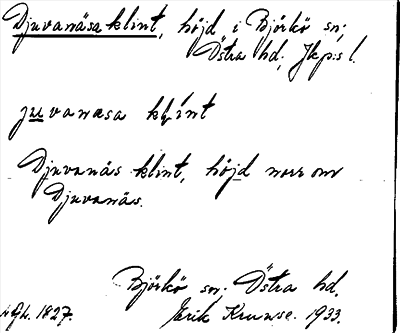 Djuvanäsa klint, höjd i Björkö sn;
Östra hd, Jkp:s l.
juvanasa klint
Djuvanäs klint, höjd norr om
Djuvanäs.
Björkö sn. Östra hd.
1827. Erik Kruuse. 1933.